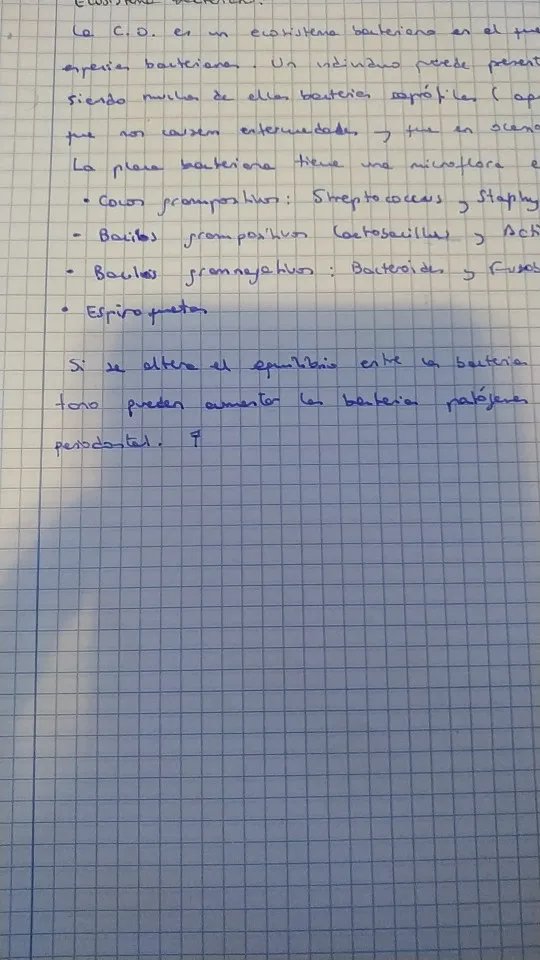 Ecosistema bacteriano.
La C.O. es un ecosistema bacteriano en el que
especies bacterianas. Un individuo puede present
siendo muchas de ellas bacterias saprófitas (
que nos causen enfermedades y que en
La placa bacteriana tiene una microflora e
• Cocos grampositivos: Streptococcus y Staphy
- Bacilos grampositivos Lactobacillus y Acti
• Bacilos gramnegativos: Bacteroides y Fusob
• Espiroquetas
Si se altera el equilibrio entre las bacterias
pueden aumentar las bacterias patógenas
periodontal.